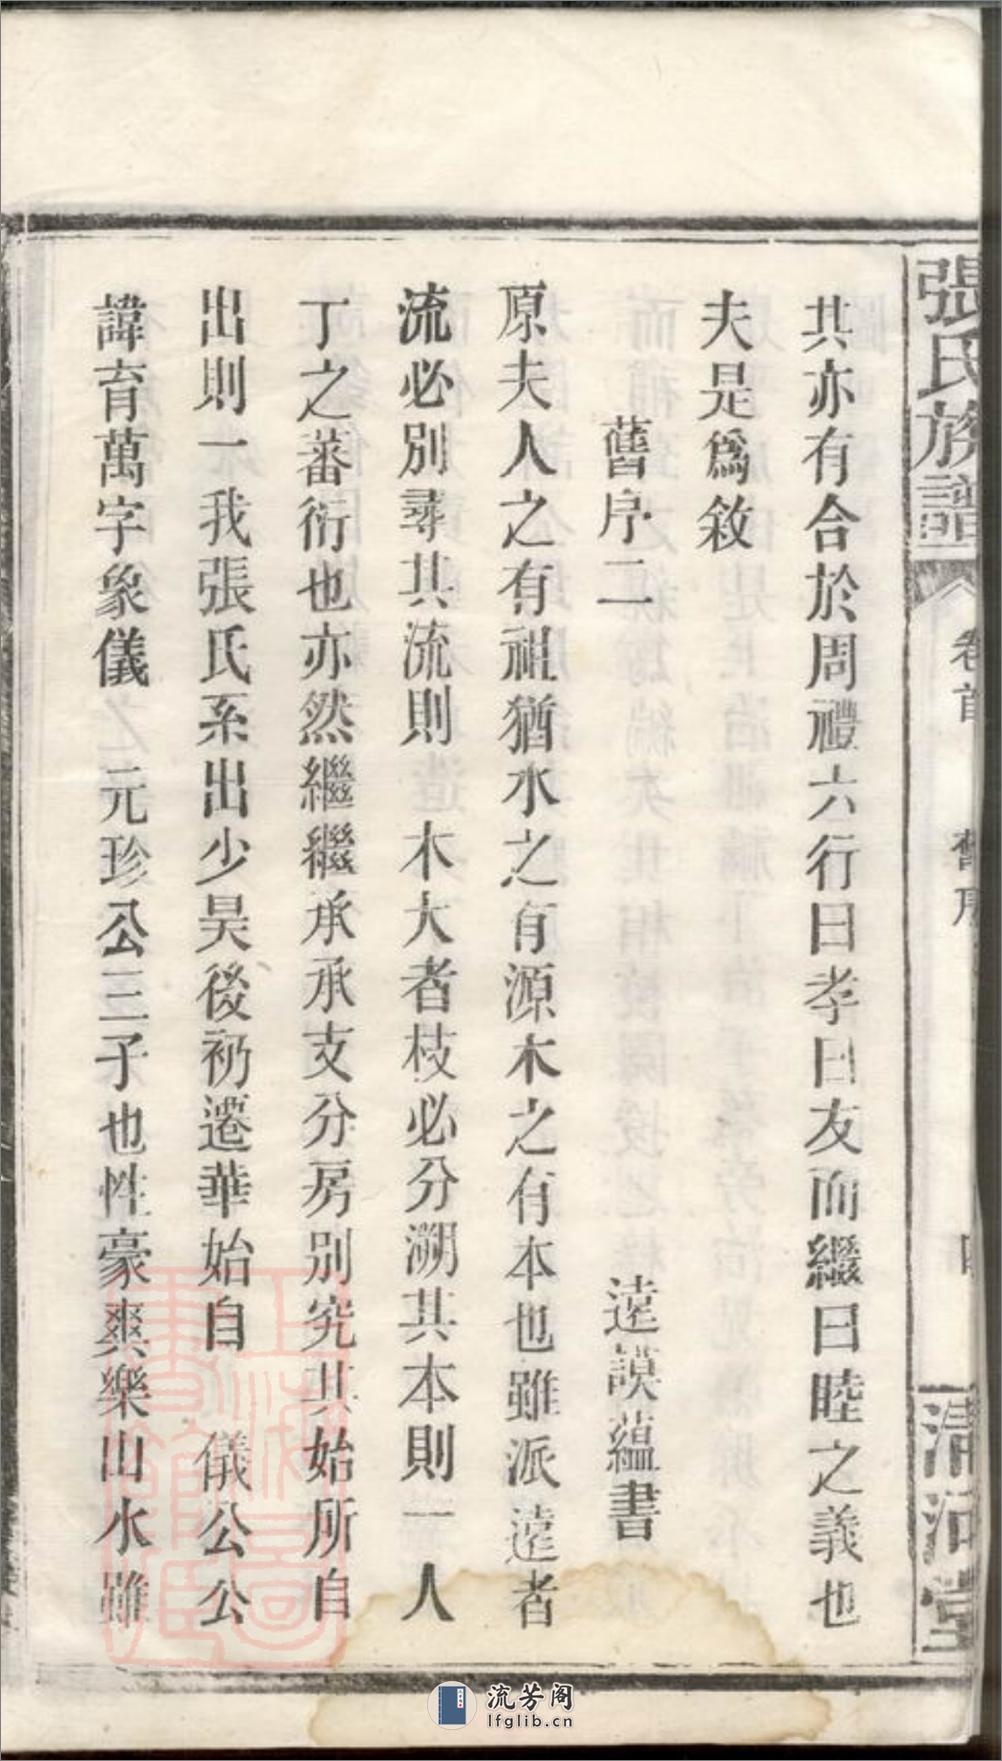 張氏族譜 卷首 舊序 清河堂
其亦有合於周禮六行曰孝曰友而繼曰睦之義也
夫是爲敘
舊序二 遠謨蘊書
原夫人之有祖猶水之有源木之有本也雖派遠者
流必別尋其流則 木大者枝必分溯其本則一人
丁之蕃衍也亦然繼繼承承支分房別究其始所自
出則一我張氏系出少昊後礽遷華始自 儀公公
諱育萬字象儀 元珍公三子也性豪爽樂山水雖
上海圖書館藏
流芳阁
lfglib.cn